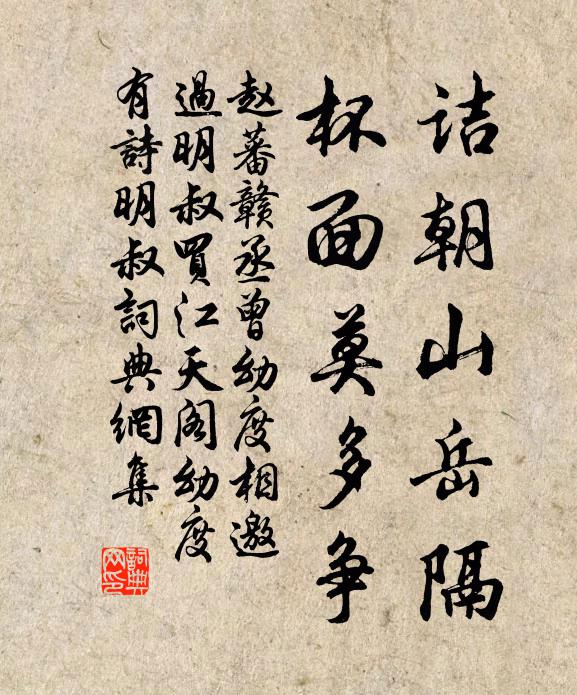 诘朝山岳隔
杯面莫多争
赵蕃赣丞曾幼度相邀
過明叔買江天阁幼度
有詩明叔詞典網集
詞典网印